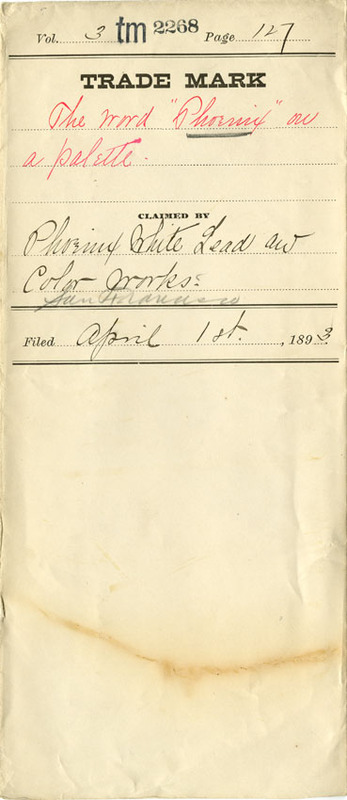 Vol. 3 tm 2268 Page 127
TRADE MARK
The word "Phoenix" on
a palette.
CLAIMED BY
Phoenix White Lead and
Color Works.
San Francisco
Filed April 1st. , 1893